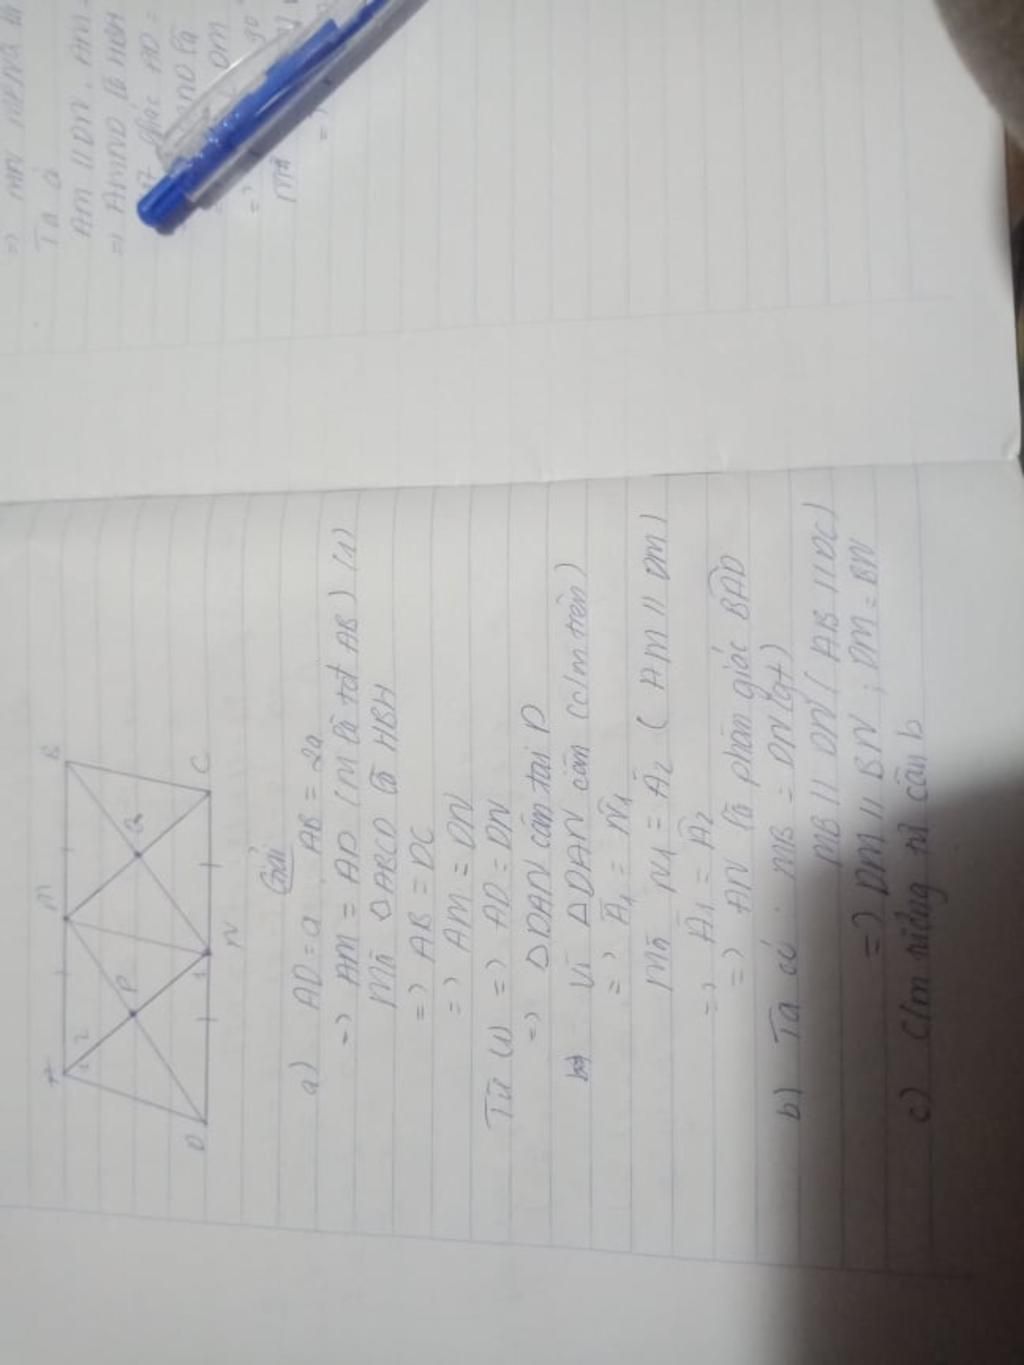 A M B
1 2
P Q
1
D N C
Giải
a) AD = a , AB = 2a
=> AM = AD (M là tđ AB) (1)
Mà ABCD là HBH
=> AB = DC
=> AM = DN
Từ (1) => AD = DN
=> Δ DAN cân tại D
Vì Δ DAN cân (c/m trên)
=> A1 = N1
Mà N1 = A2 ( AM // DM)
=> A1 = A2
=> AN là phân giác BAD
b) Ta có : MB = DN (gt)
MB // DN ( AB // DC)
=> DM // BN ; DM = BN
c) C/m tương tự câu b
=> MN
Ta có
AM // DN , AM =
=> AMND là HBH
giác AD =
AMND là
DM
=> 90
Mà
=>